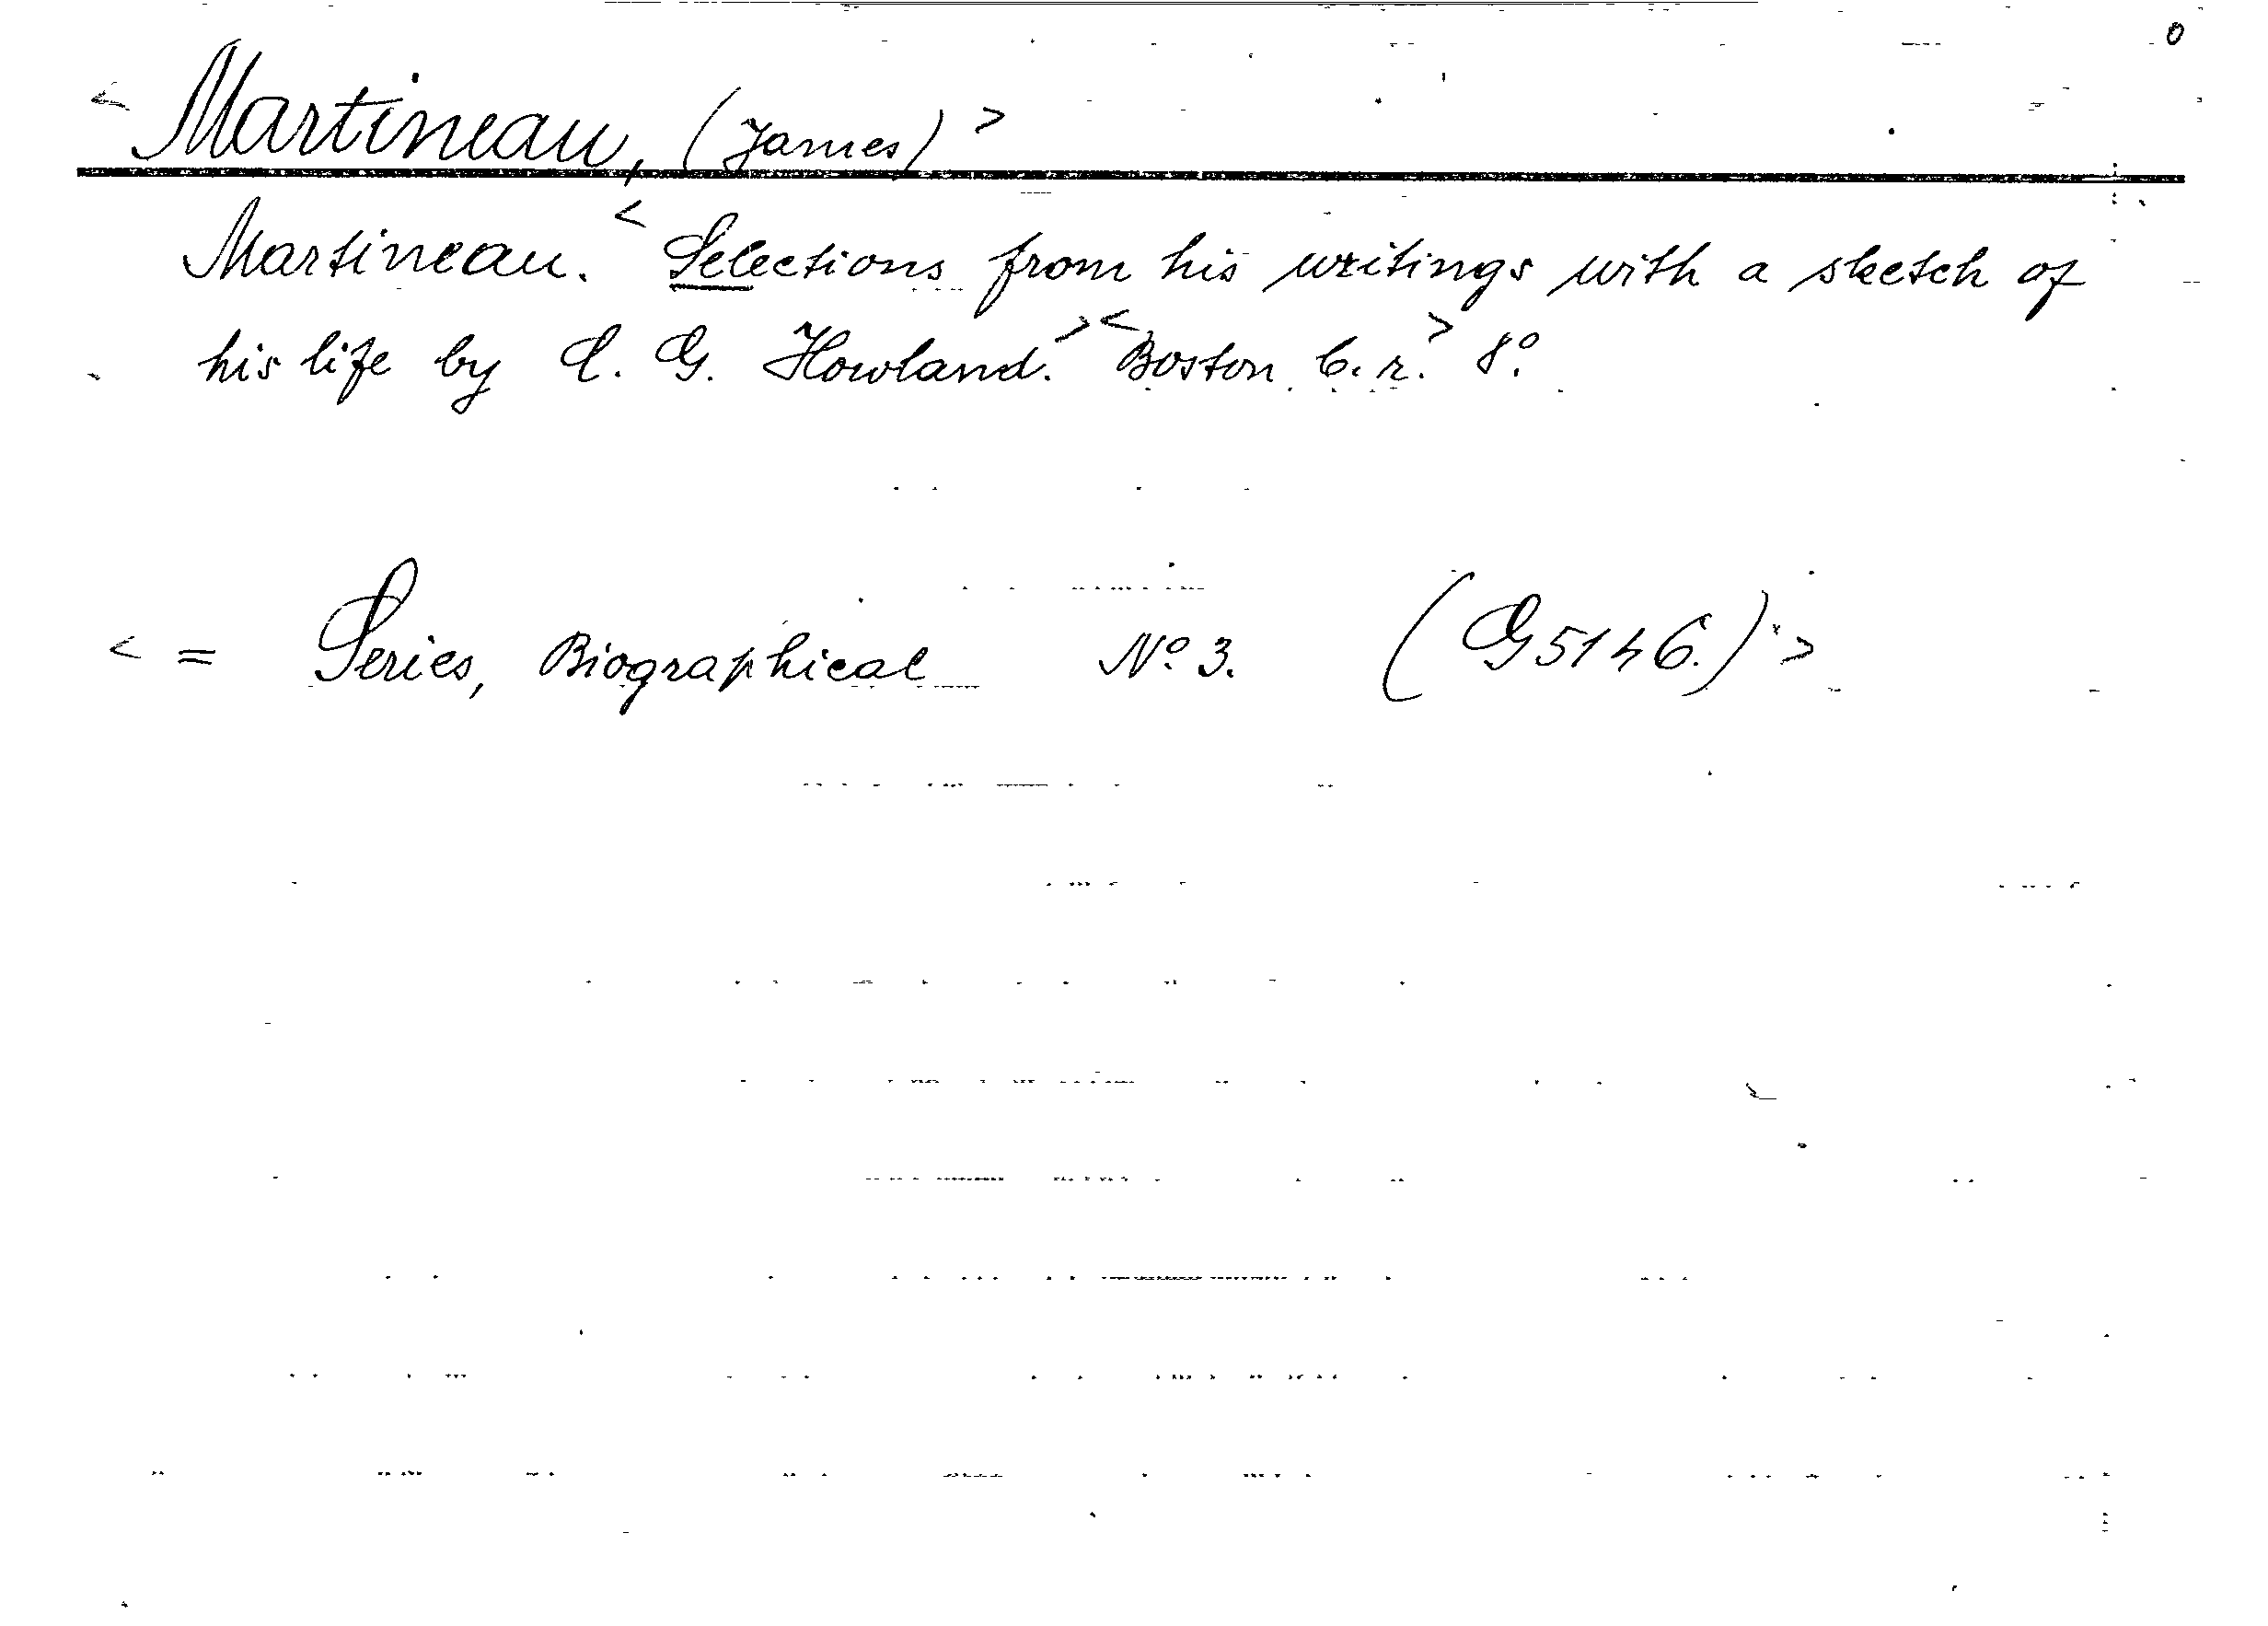 0
< Martineau, (James) >
Martineau. < Selections from his writings with a sketch of
his life by C. G. Howland. > < Boston b. r. > 8º.
< = Series, Biographical Nº 3. (G5146.) >